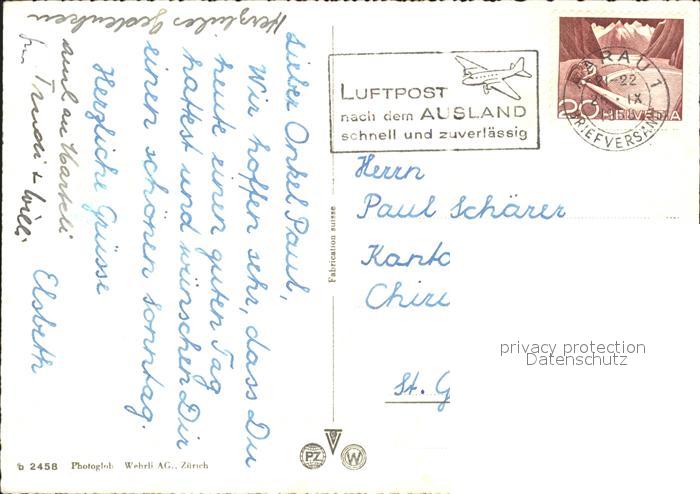 Lieber Onkel Paul,
Wir hoffen sehr, dass Du
heute einen guten Tag
hattest und wünschen Dir
einen schönen Sonntag.
Herzliche Grüsse
Elsbeth
auch an Marteli
Trudi & Willi
Herzliches Gedenken
LUFTPOST
nach dem AUSLAND
schnell und zuverlässig
AARAU 1
-22
IX
BRIEFVERSAND
20 HELVETIA
Herrn
Paul Schärer
Kanto
Chiru
St. G
Fabrication suisse
privacy protection
Datenschutz
b 2458 Photoglob Wehrli AG., Zürich
PZ W